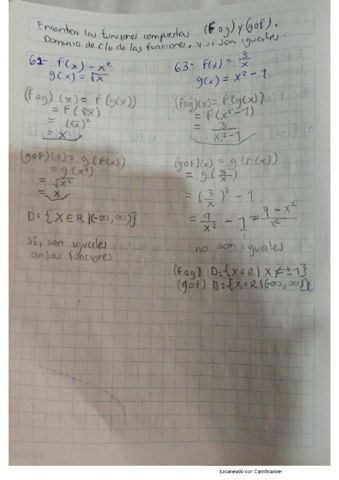 Encontrar las funciones compuestas (Fog) y (gof).
Dominio de c/u de las funciones, y si son iguales.
62- f(x) = x²
g(x) = √x
(fog)(x) = f(g(x))
= f(√x)
= (√x)²
= x
(gof)(x) = g(f(x))
= g(x²)
= √x²
= x
D: {X∈R|(-∞,∞)}
Si, son iguales
ambas funciones
63- f(x) = 3/x
g(x) = x² - 1
(fog)(x) = f(g(x))
= f(x²-1)
= 3/x²-1
(gof)(x) = g(f(x))
= g(3/x)
= (3/x)² - 1
= 9/x² - 1/1 = 9-x²/x²
no son iguales
(fog) D: {X∈R | X ≠ ±1}
(gof) D: {X∈R|(-∞,∞)}
Escaneado con CamScanner